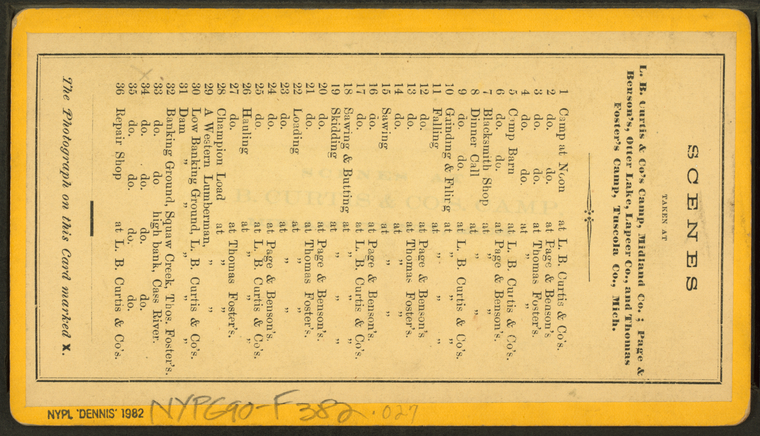 SCENES
TAKEN AT
L. B. Curtis & Co's Camp, Midland Co. ; Page &
Benson's, Otter Lake, Lapeer Co., and Thomas
Foster's Camp, Tuscola Co., Mich.
1 Camp at Noon at L. B. Curtis & Co's.
2 do. do. at Page & Benson's
3 do. do. at Thomas Foster's.
4 do. do. at „ „
5 Camp Barn at L. B. Curtis & Co's.
6 do. do. at Page & Benson's.
7 Blacksmith Shop at „ „
8 Dinner Call at „ „
9 do. do. at L. B. Curtis & Co's.
10 Grinding & Filing at „ „
11 Falling at „ „
12 do. at Page & Benson's
13 do. at Thomas Foster's.
14 do. at „ „
15 Sawing at „ „
16 do. at Page & Benson's.
17 do. at L. B. Curtis & Co's.
18 Sawing & Butting at „ „
19 Skidding at „ „
20 do. at Page & Benson's.
21 do. at Thomas Foster's.
22 Loading at „ „
23 do. at „ „
24 do. at Page & Benson's.
25 do. at L. B. Curtis & Co's.
26 Hauling at „ „
27 do. at Thomas Foster's.
28 Champion Load at „ „
29 A Western Lumberman, „ „
30 Low Banking Ground, L. B. Curtis & Co's.
31 Dam „ „ „ „
32 Banking Ground, Squaw Creek, Thos. Foster's.
33 do. do high bank, Cass River.
34 do. do. do. do.
35 do. do. do. do.
36 Repair Shop at L. B. Curtis & Co's.
The Photograph on this Card marked X.
NYPL 'DENNIS' 1982 NYPG90-F382 .027